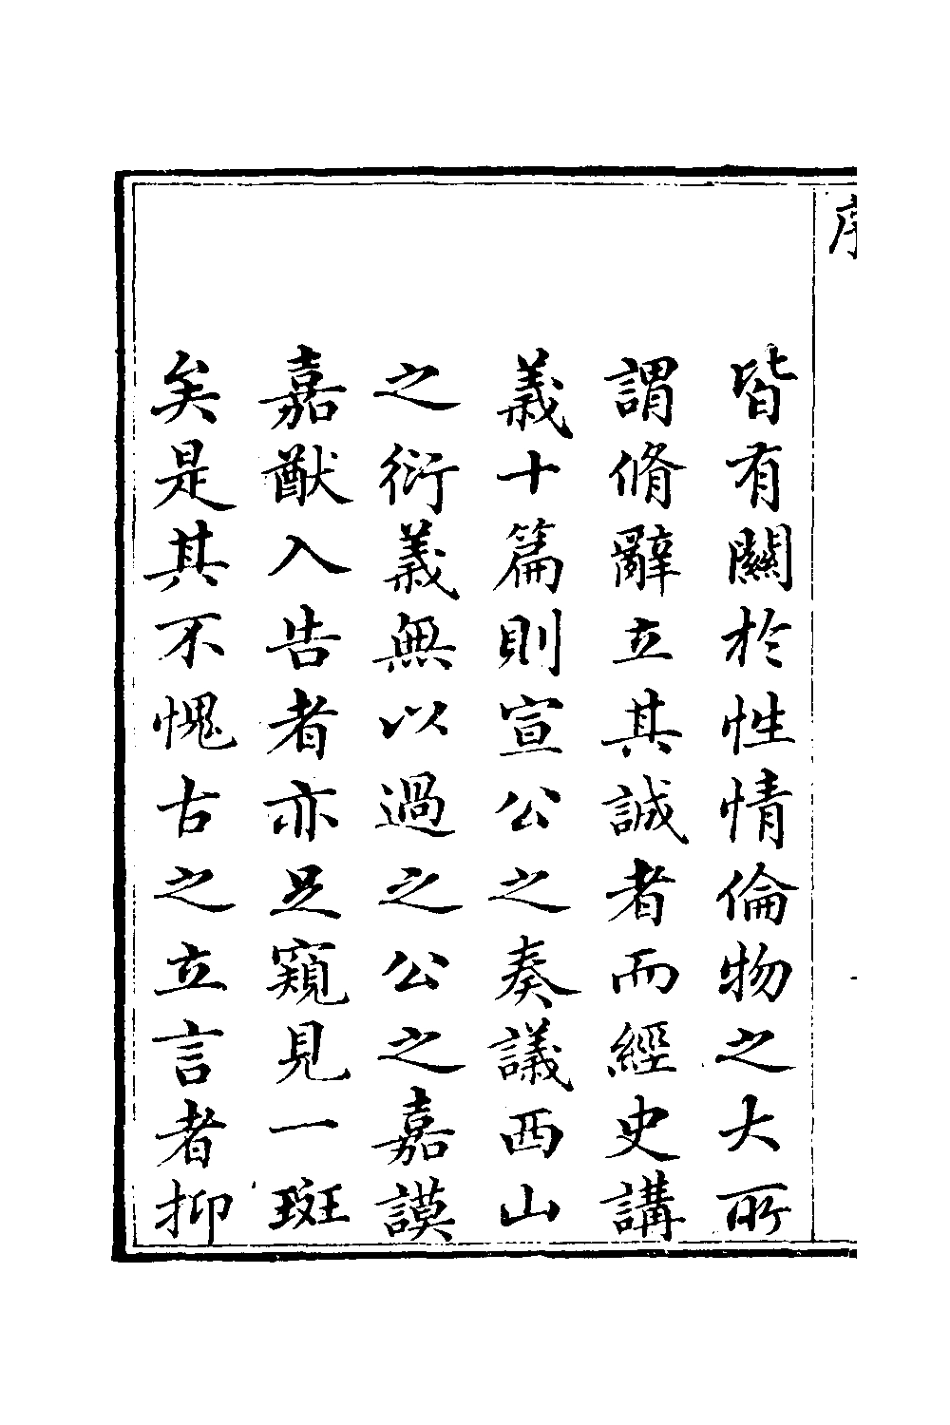 序
皆有關於性情倫物之大所
謂脩辭立其誠者而經史講
義十篇則宣公之奏議西山
之衍義無以過之公之嘉謨
嘉猷入告者亦足窺見一斑
矣是其不愧古之立言者抑